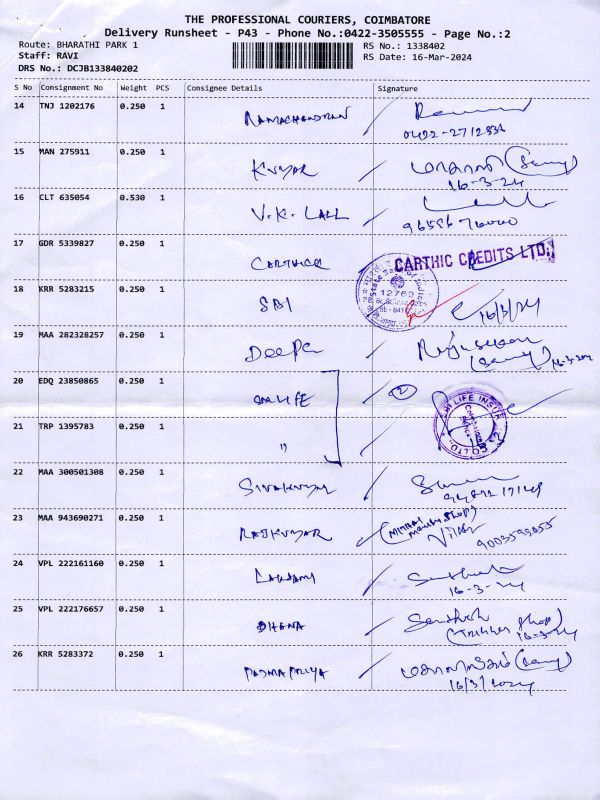 THE PROFESSIONAL COURIERS, COIMBATORE
Delivery Runsheet - P43 - Phone No.:0422-3505555 - Page No.:2
Route: BHARATHI PARK 1 RS No.: 1338402
Staff: RAVI RS Date: 16-Mar-2024
DRS No.: DCJB133840202
S No Consignment No Weight PCS Consignee Details Signature
14 TNJ 1202176 0.250 1 RAMACHANDRAN
15 MAN 275911 0.250 1 KUMAR
16-3-24
16 CLT 635054 0.530 1 V.K. LALL
17 GDR 5339827 0.250 1 CARTHICC CARTHIC CREDITS LTD.
18 KRR 5283215 0.250 1 SBI State Bank of India 16/3/24
19 MAA 282328257 0.250 1 Deepa
20 EDQ 23850865 0.250 1 SBI LIFE 2 SBI LIFE INSUR
21 TRP 1395783 0.250 1 " CO.LTD.
22 MAA 300501308 0.250 1 SIVAKUMAR
23 MAA 943690271 0.250 1 RAJKUMAR
24 VPL 222161160 0.250 1
16-3-24
25 VPL 222176657 0.250 1 DHANA
16-3-24
26 KRR 5283372 0.250 1 PADMAPRIYA
16/3/2024